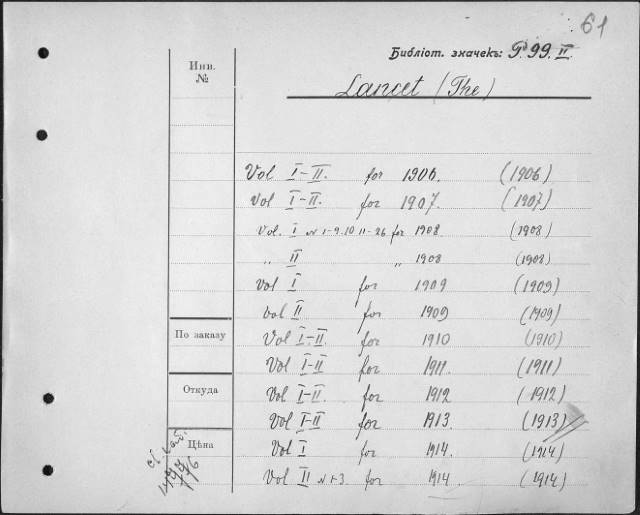 61
Библіот. значекъ: 99. II.
Инв. №
Lancet (The)
Vol I-II. for 1906. (1906)
Vol I-II. for 1907. (1907)
Vol. I N 1-9.10 11-26 for 1908. (1908)
" II " 1908 (1908)
Vol I for 1909 (1909)
Vol II for 1909 (1909)
По заказу
Vol I-II. for 1910 (1910)
Vol I-II for 1911. (1911)
Откуда
Vol I-II. for 1912 (1912)
Vol I-II for 1913. (1913)
Цѣна
Vol I for 1914. (1914)
Vol II N 1-3 for 1914 (1914)